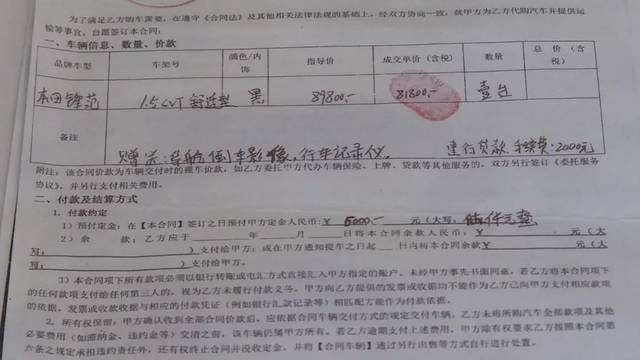 为了满足乙方购车需要，在遵守《合同法》及其他相关法律法规的基础上，经双方协商一致，就甲方为乙方代购汽车并提供运
输等事宜，自愿签订本合同：
一、车辆信息、数量、价款
品牌车型 车架号 颜色/内饰 指导价 成交单价（含税） 数量 总 价（含税）
本田锋范 1.5CVT舒适型 黑 89800.- 81800.- 壹台
备注 赠送：导航,倒车影像,行车记录仪. 建行贷款 手续费:2000元
附注：该合同价款为车辆交付时的裸车价款，如乙方委托甲方代办车辆保险、上牌、贷款等其他服务的，双方另行签订《委托服务
协议》，并另行支付相关费用。
二、付款及结算方式
1. 付款约定
1）预付定金：在【本合同】签订之日预付甲方定金人民币：￥ 6000.- 元（大写：陆仟元整
2）余 款：乙方应于 年 月 日将本合同余款人民币￥ 元（大
写： ）支付给甲方；或在甲方通知提车之日起 日内将本合同余款￥ 元（大
写： ）支付给甲方。
3）本合同项下所有款项必须以银行转账或电汇方式直接汇入甲方指定的账户。未经甲方事先书面同意，若乙方将本合同项下
的任何款项支付给任何第三人的，视为乙方未履行付款义务。甲方向乙方提供的发票或收据均不能作为乙方已向甲方支付相应款项
的依据，发票或收款收据与相应的付款凭证（例如银行汇款记录等）相匹配方能作为付款依据。
2. 所有权保留：甲方确认收到全部合同价款后，应依据合同车辆交付方式的规定交付车辆。乙方未将所购汽车全部款项及其他
必要费用（如滞纳金、违约金等）交清之前，该车辆仍属甲方所有。若乙方逾期支付上述费用，甲方除有权要求乙方按照本合同第
六条之规定承担违约责任外，还有权终止合同并没收定金，并将【合同车辆】通过另行出售等方式自行进行处置。